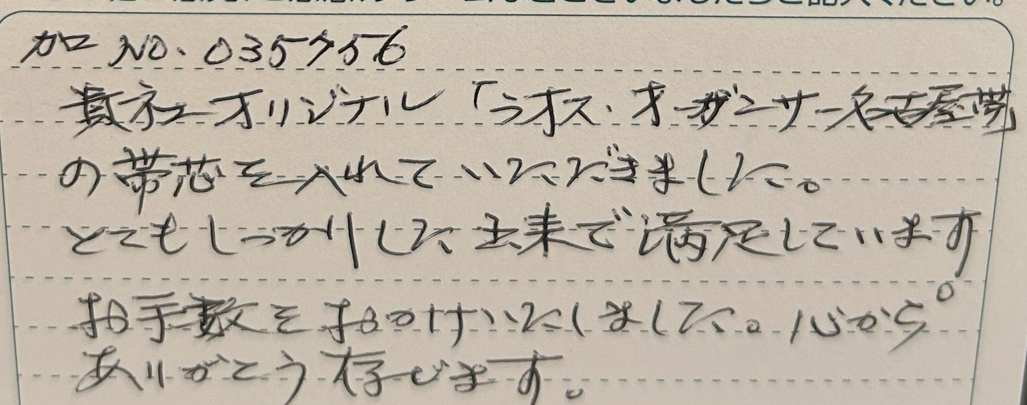 加工 NO. 0357756
貴社オリジナル「ラオス・オーガンサー名古屋帯
の帯芯を入れていただきました。
とてもしっかりした出来で満足しています。
お手数をおかけいたしました。心から
ありがとう存じます。